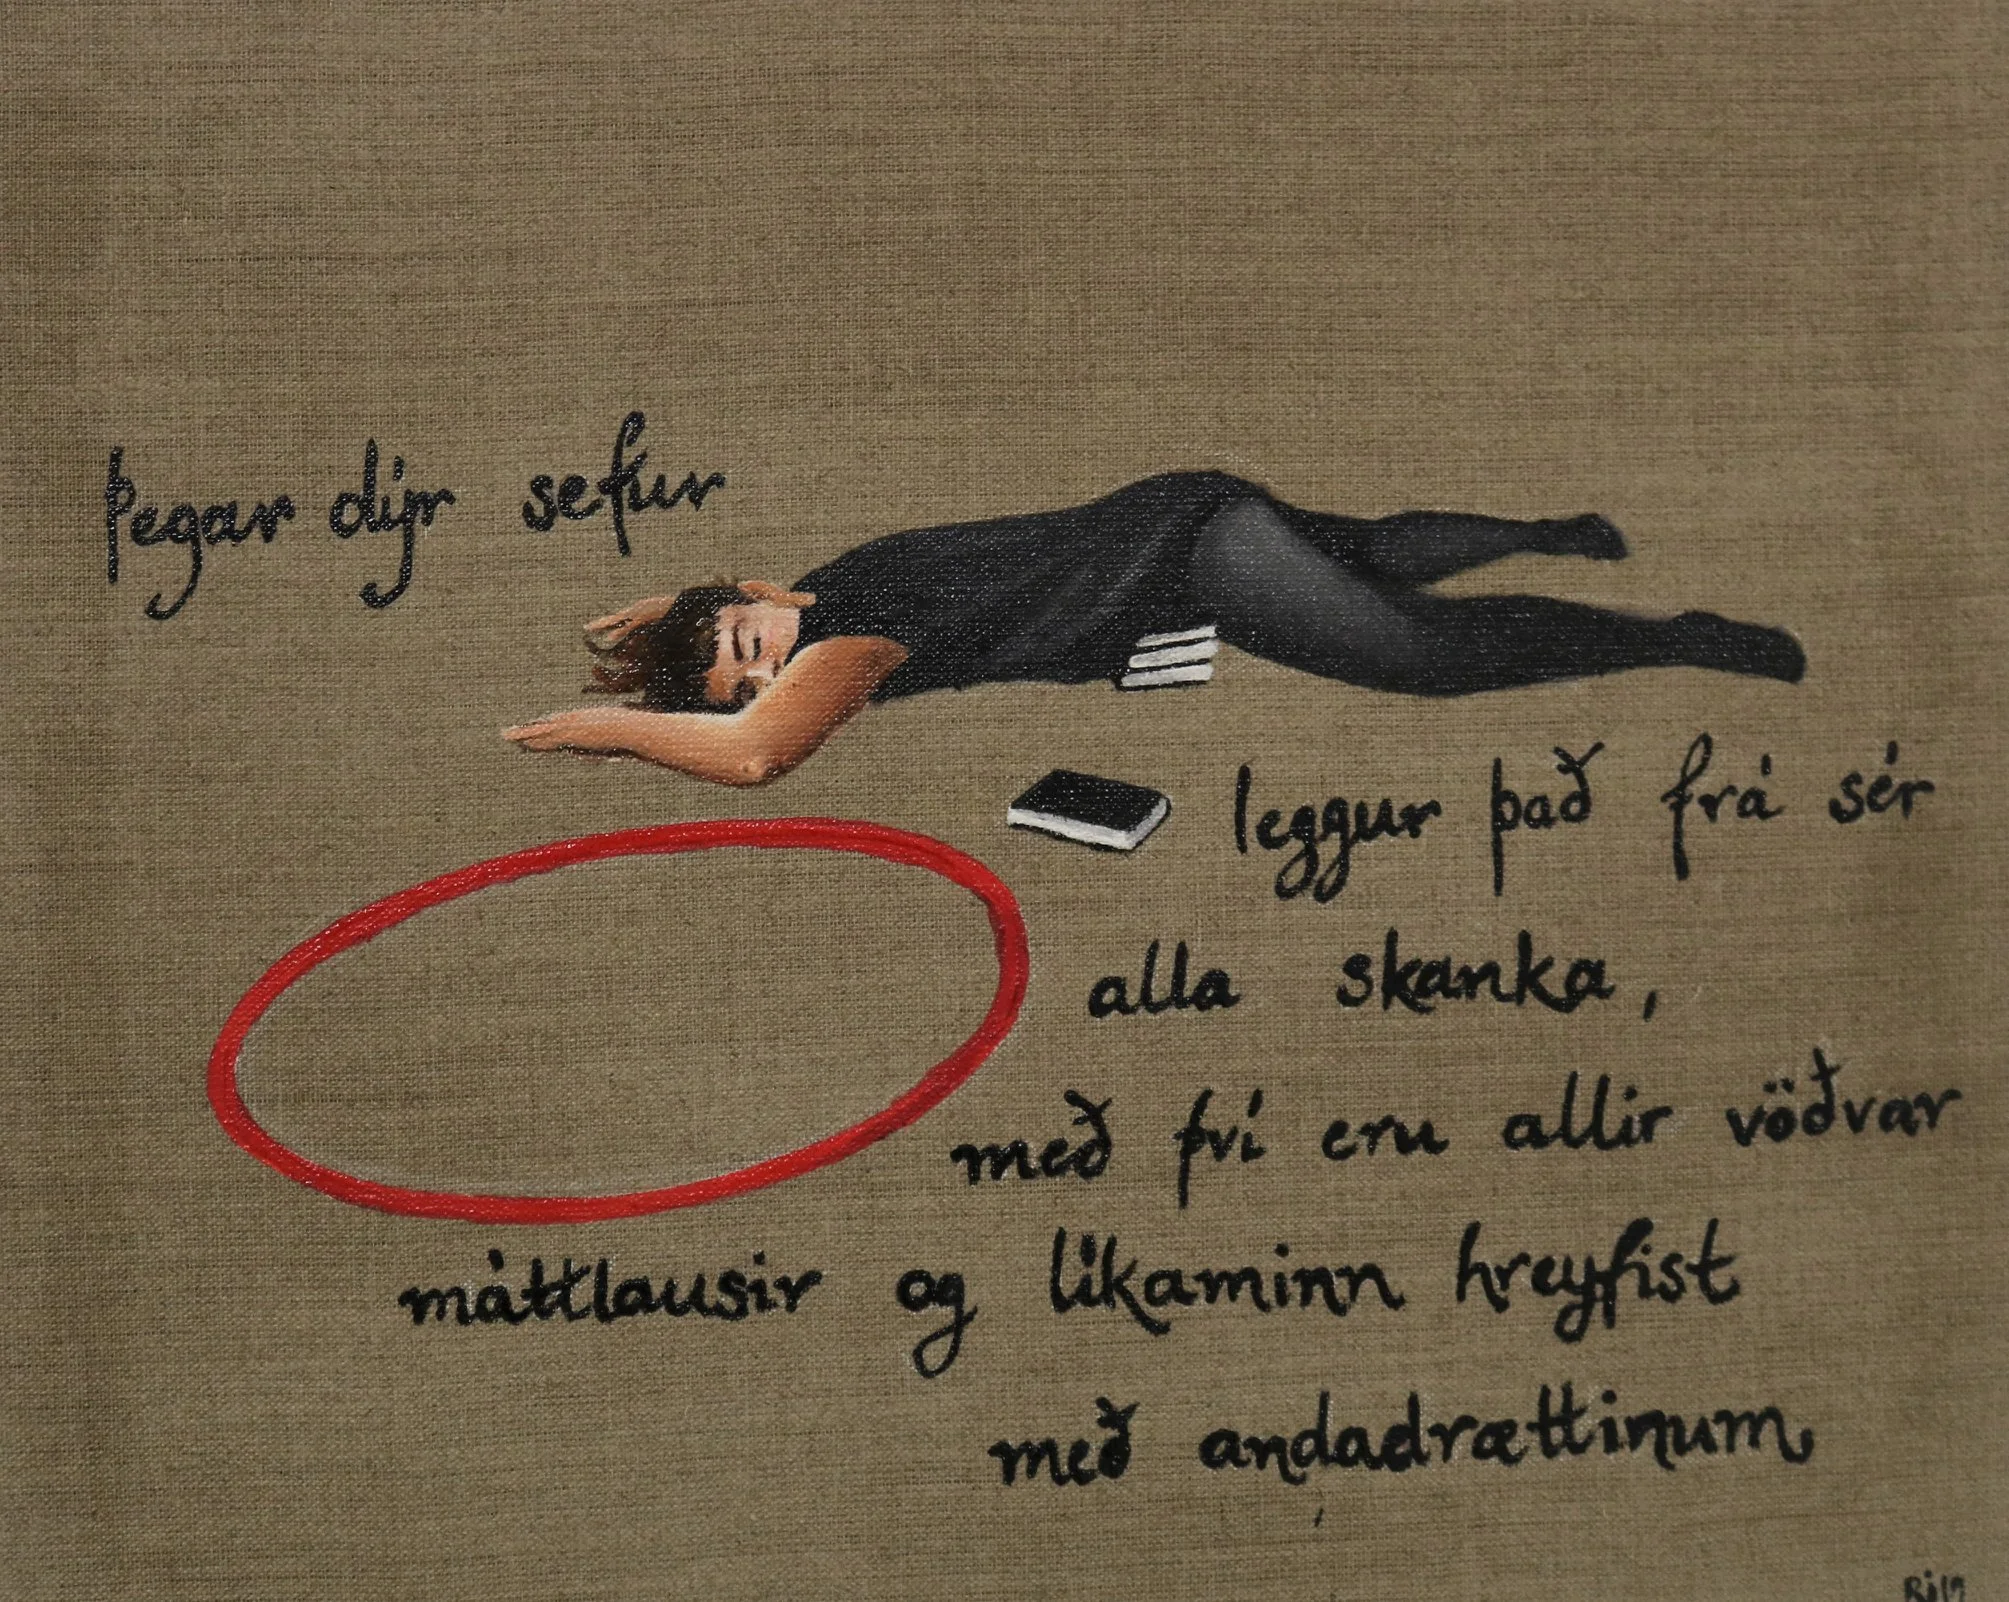 Þegar dýr sefur
leggur það frá sér
alla skanka,
með því eru allir vöðvar
máttlausir og líkaminn hreyfist
með andadrættinum